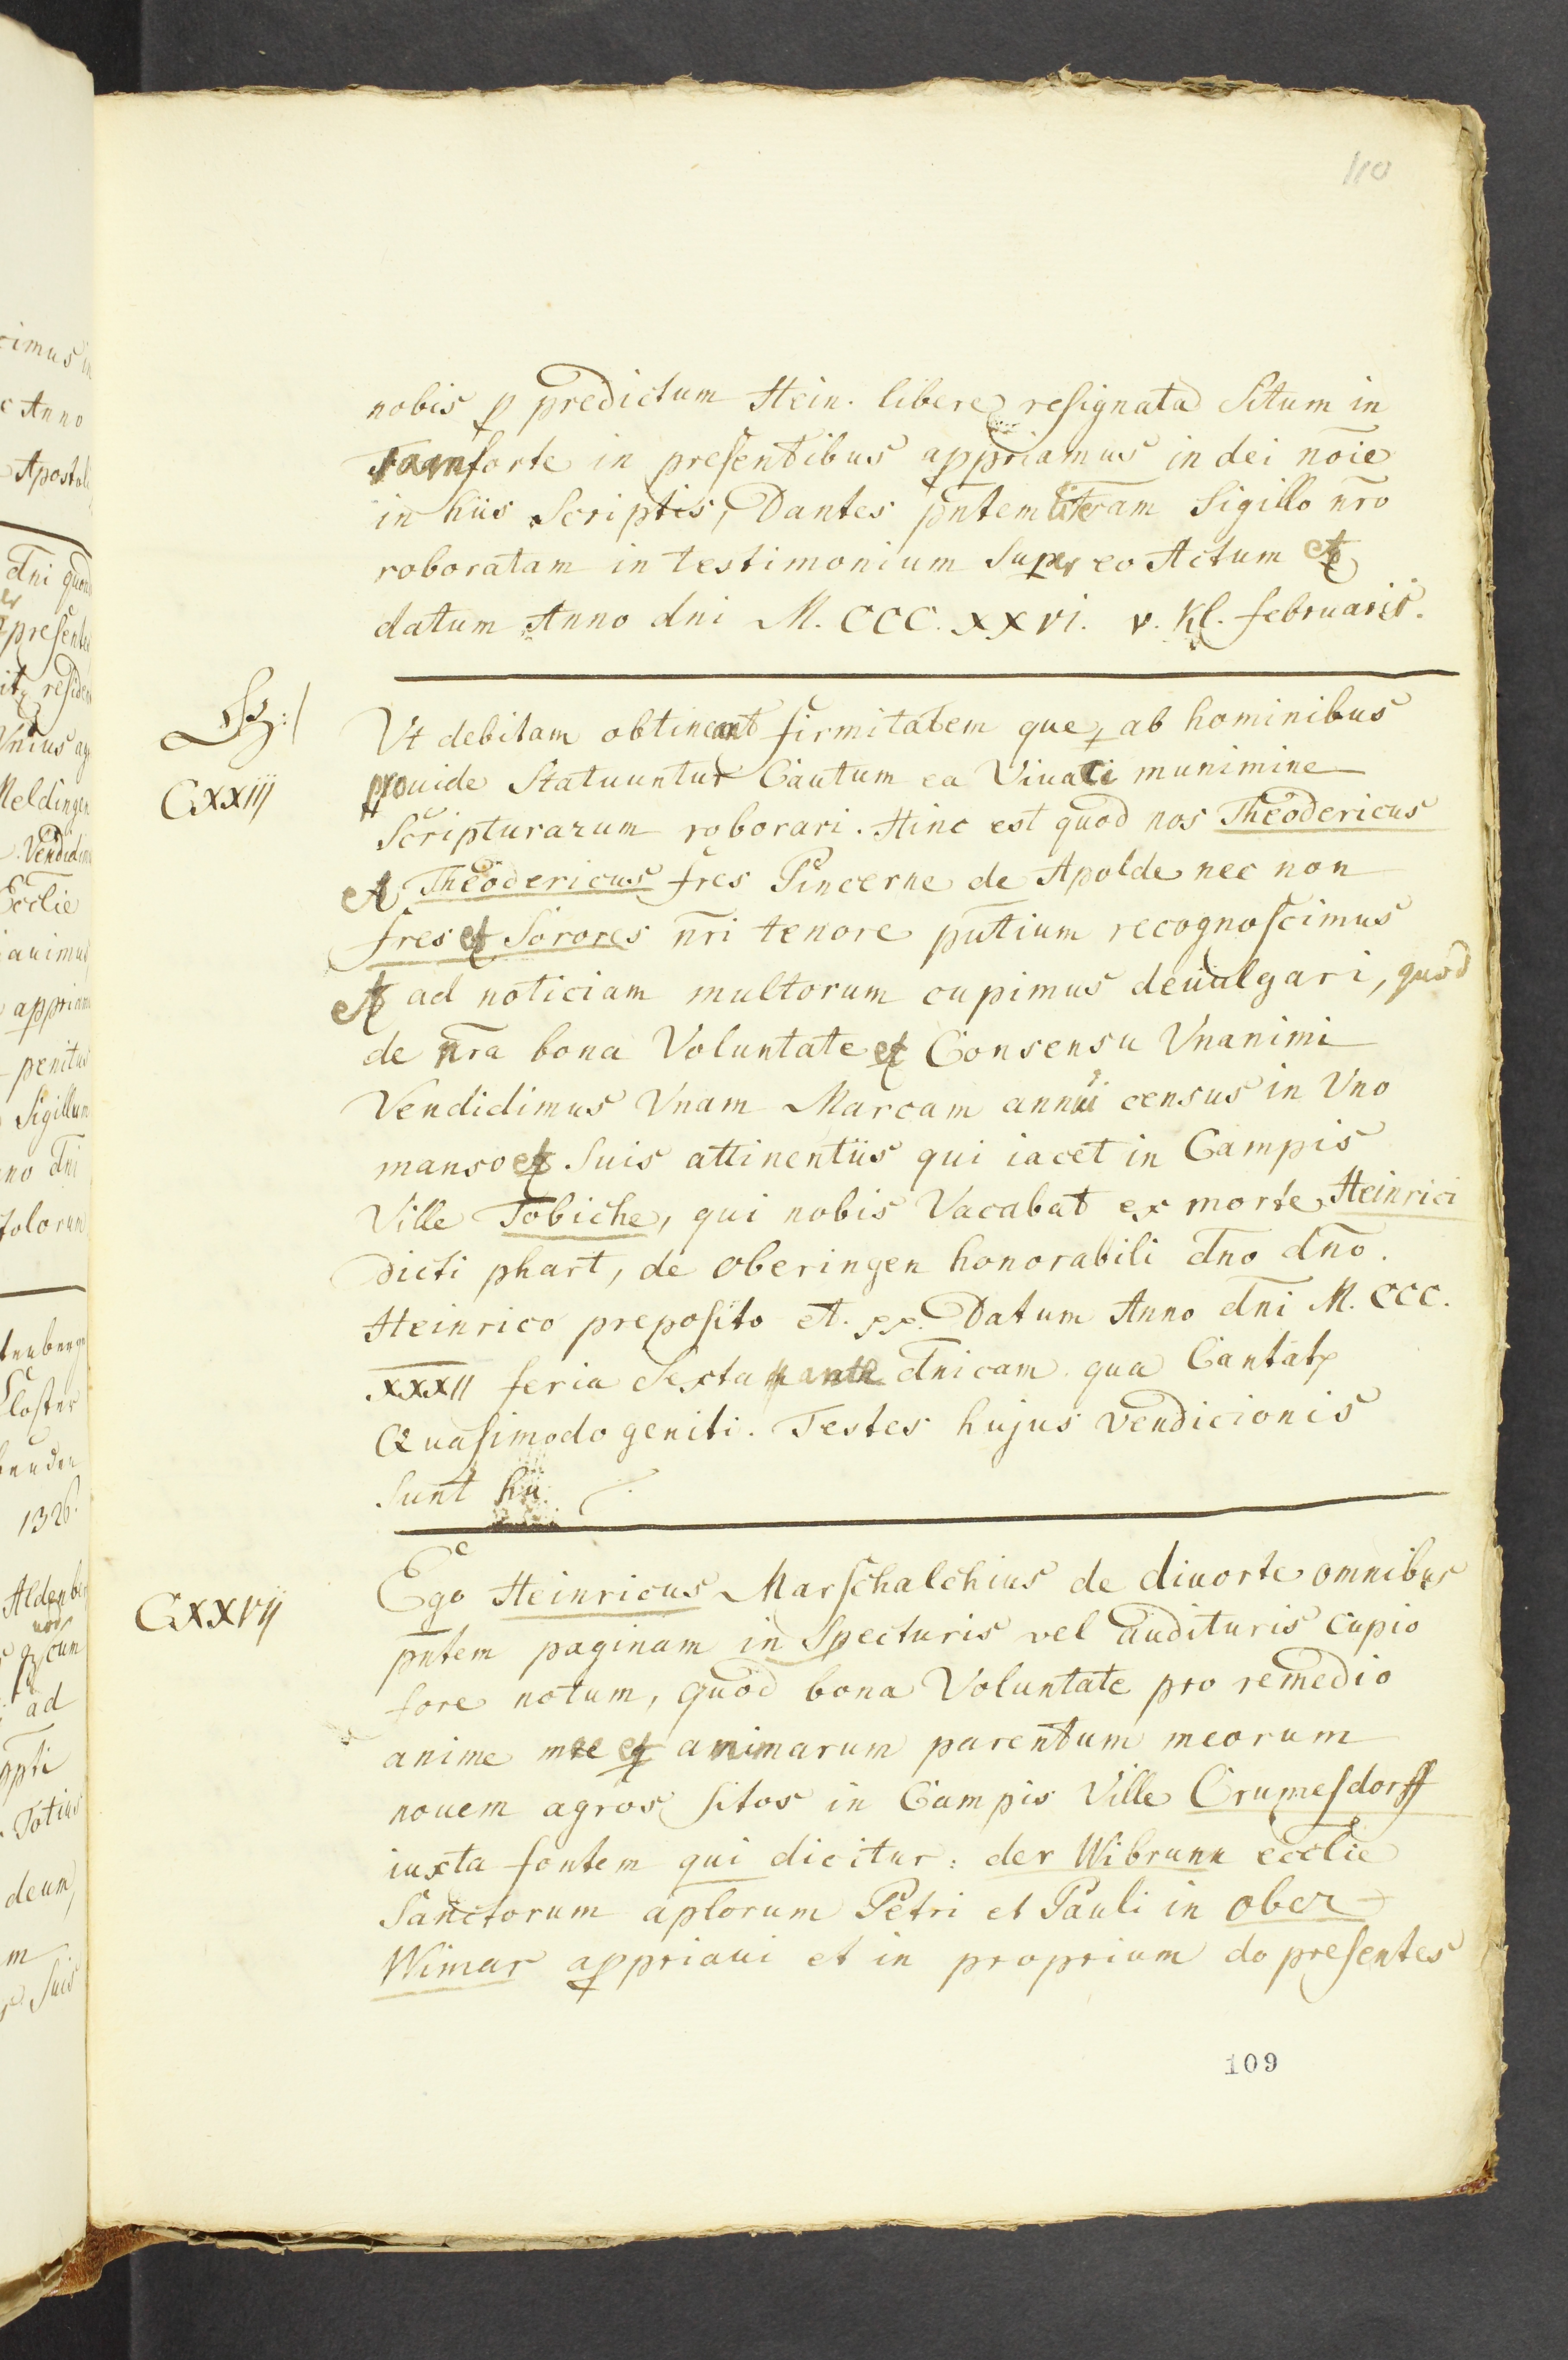 110
nobis p predictum Hein. libere resignata Situm in
Tranforte in presentibus appriamus in dei no͞ie
in hiis Scriptis, Dantes pntem literam Sigillo nr̄o
roboratam in testimonium Super eo Actum et
datum Anno dni M. CCC. XXVI. v. Kl. februarii.
CXXIIJ
Vt debitam obtineant firmitatem que ab hominibus
prouide Statuuntur Cautum ea Viuaci munimine
Scripturarum roborari. Hinc est quod nos Theodericus
et Theodericus fres Pincerne de Apolde nec non
fres et Sorores nr̄i tenore pn̄tium recognoscimus
et ad noticiam multorum cupimus deuulgari, quod
de nr̄a bona Voluntate et Consensu Vnanimi
Vendidimus Vnam Marcam annui census in Vno
manso et Suis attinentiis qui iacet in Campis
Ville Tobiche, qui nobis Vacabat ex morte Heinrici
dicti phart, de Oberingen honorabili dn̄o dn̄o.
Heinrico preposito et. xx. Datum Anno dn̄i M. CCC.
XXXII feria Sexta ante dn̄icam qua Cantat
Quasimodo geniti. Testes hujus vendicionis
Sunt hii
CXXVIJ
Ego Heinricus Marschalchius de diuorte omnibus
pntem paginam in Specturis vel audituris cupio
fore notum, quod bona Voluntate pro remedio
anime mee et animarum parentum meorum
nouem agros sitos in Campis Ville Crumesdorff
iuxta fontem qui dicitur: der Wibrunn ecclie
Sanctorum aplorum Petri et Pauli in Ober
Wimar appriaui et in proprium do presentes
109